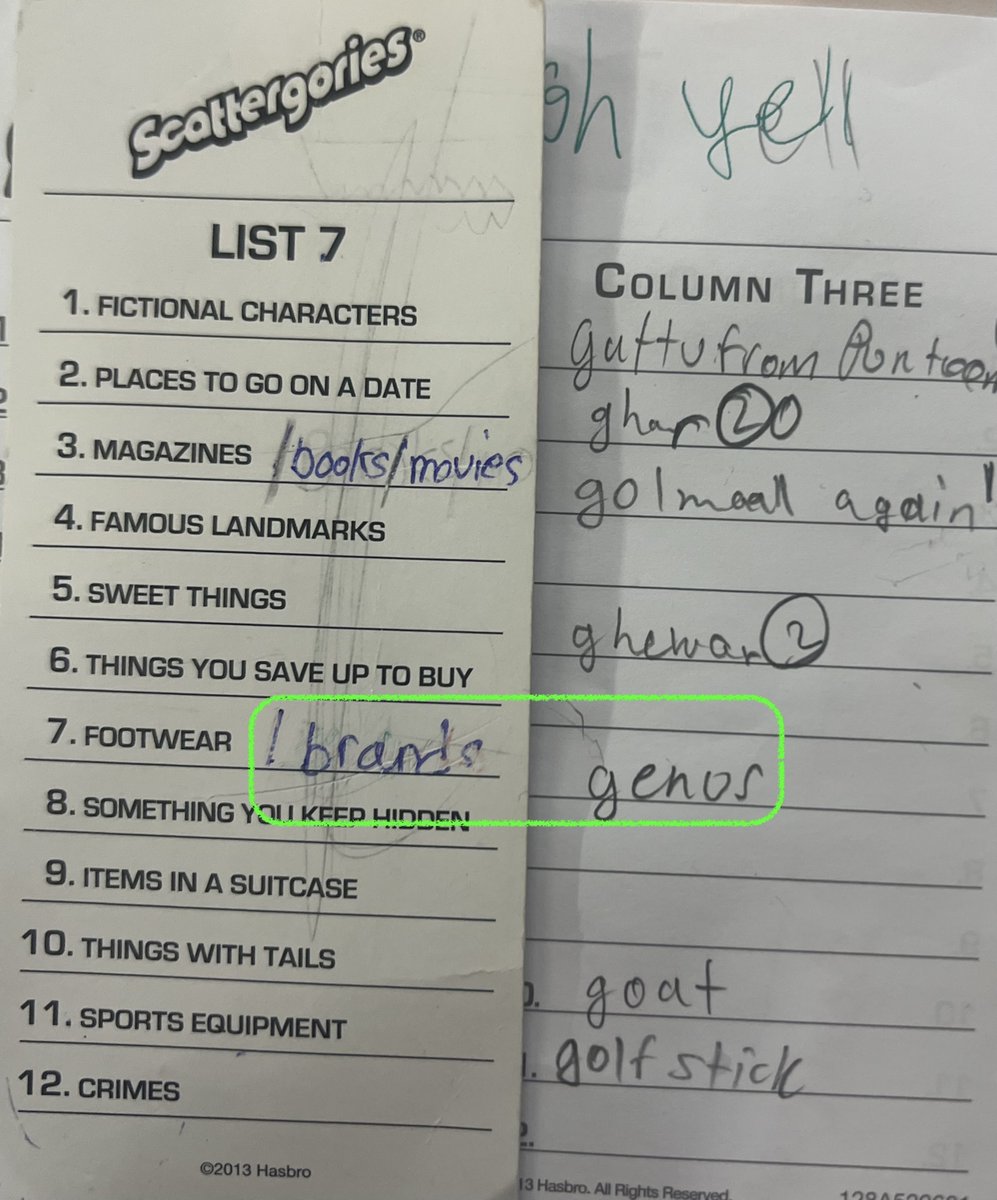 Scattergories®
LIST 7
1. FICTIONAL CHARACTERS
2. PLACES TO GO ON A DATE
3. MAGAZINES /books/movies
4. FAMOUS LANDMARKS
5. SWEET THINGS
6. THINGS YOU SAVE UP TO BUY
7. FOOTWEAR / brands
8. SOMETHING YOU KEEP HIDDEN
9. ITEMS IN A SUITCASE
10. THINGS WITH TAILS
11. SPORTS EQUIPMENT
12. CRIMES
©2013 Hasbro
gh yell
COLUMN THREE
guttu from
ghar 20
golmaal again
ghewar 2
genos
goat
golf stick
13 Hasbro. All Rights Reserved.